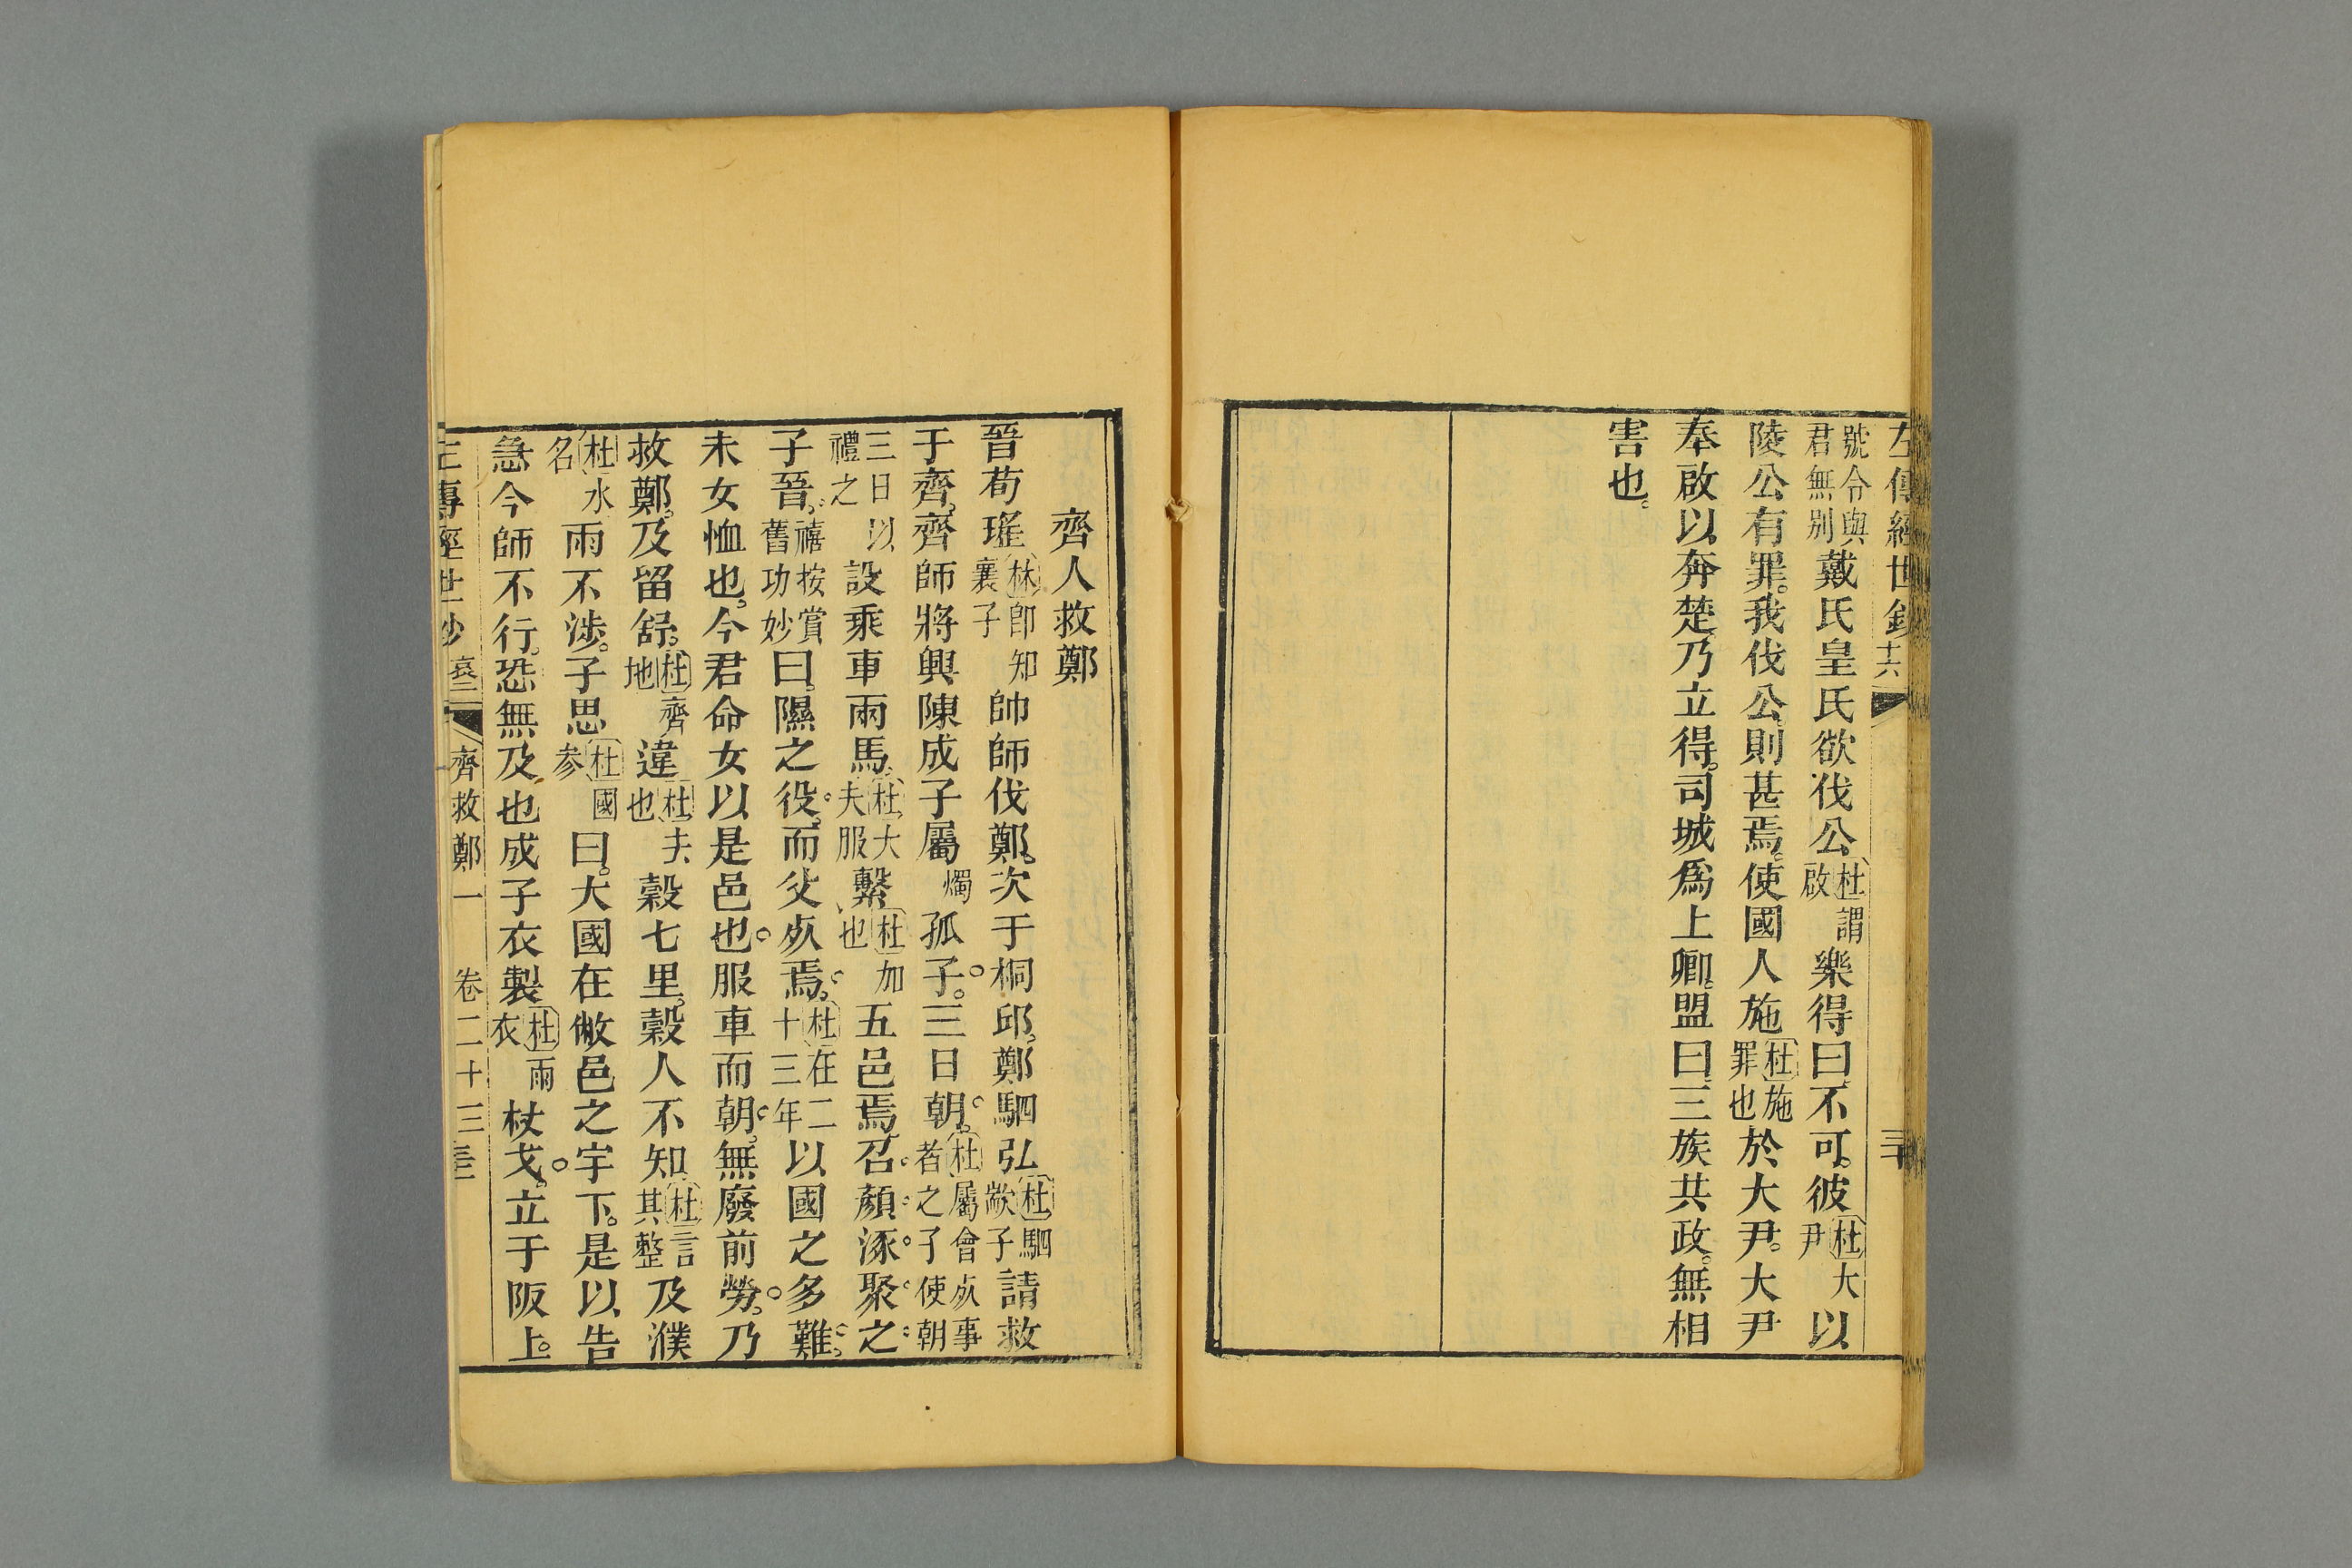 左傳經世鈔 十六 三十
號令與君無別戴氏皇氏欲伐公杜謂啟樂得曰不可彼杜大尹以
陵公有罪。我伐公則甚焉。使國人施杜施罪也於大尹。大尹
奉啟以奔楚乃立得。司城為上卿。盟曰三族共政。無相
害也。
齊人救鄭
晉荀瑤林卽知襄子帥師伐鄭。次于桐邱。鄭駟弘杜駟歂子請救
于齊。齊師將興陳成子屬燭孤子。三日朝。杜屬會死事者之子使朝
三日以禮之設乘車兩馬。杜大夫服繫杜加也五邑焉。召顏涿聚之
子晉。禧按賞舊功妙曰。隰之役。而父死焉。杜在二十三年以國之多難。
未女恤也。今君命女以是邑也。服車而朝。無廢前勞。乃
救鄭。及留舒。杜齊地違杜去也穀七里。穀人不知杜言其整及濮
杜水名雨不涉。子思杜國参曰。大國在敝邑之宇下。是以告
急今師不行。恐無及也成子衣製杜雨衣杖戈。立于阪上。
左傳經世鈔 哀二 齊救鄭 一 卷二十三